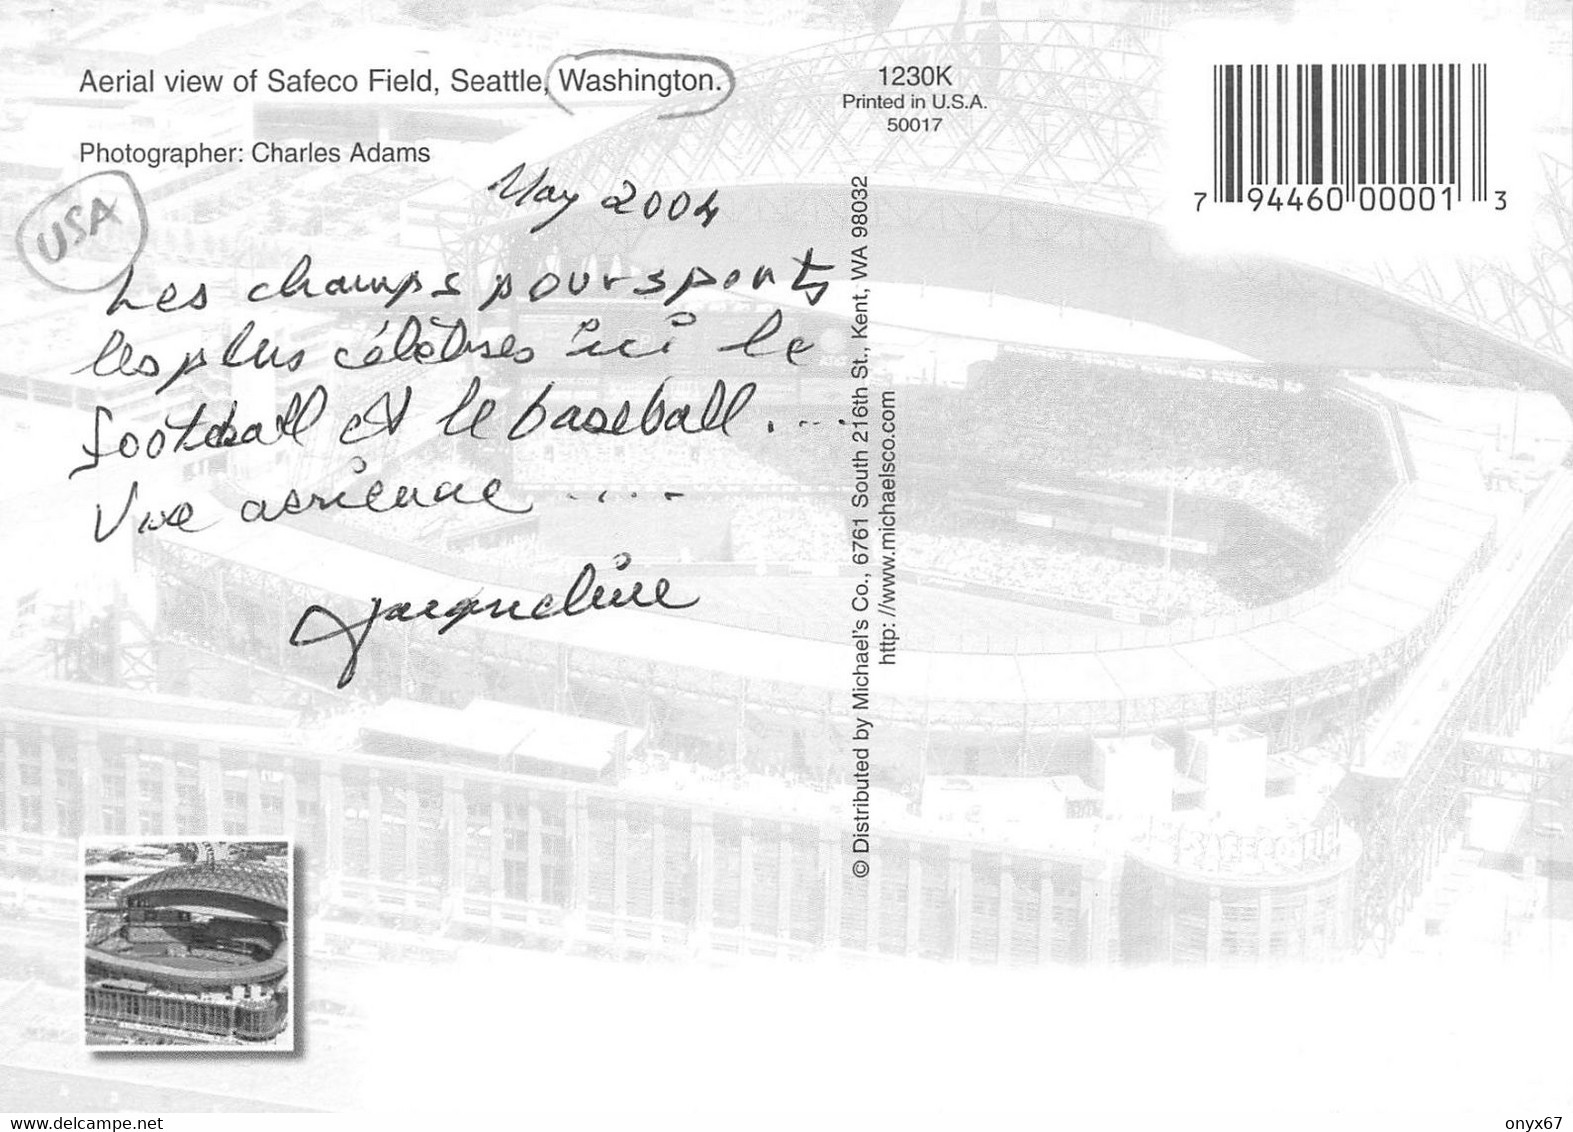 Aerial view of Safeco Field, Seattle, Washington.
Photographer: Charles Adams
USA
May 2004
Les champs pour sports
les plus célèbres ici le
football et le baseball ....
Vue aérienne .....
Jacqueline
1230K
Printed in U.S.A.
50017
© Distributed by Michael's Co., 6761 South 216th St., Kent, WA 98032
http: //www.michaelsco.com
7 94460 00001 3
www.delcampe.net
onyx67